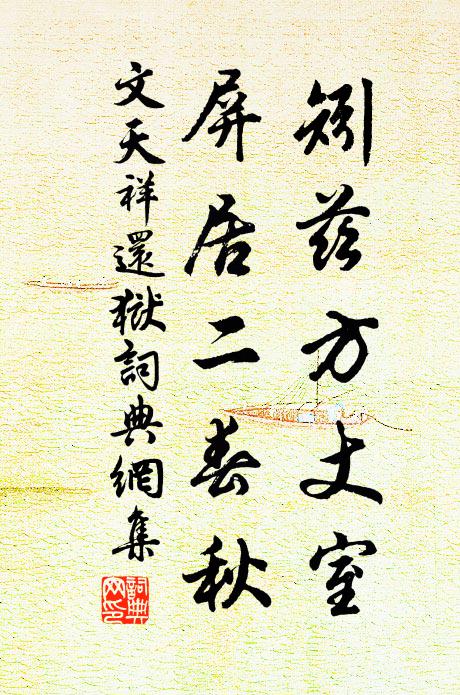 矧茲方丈室
屏居二春秋
文天祥還獄詞典網集
詞典網印